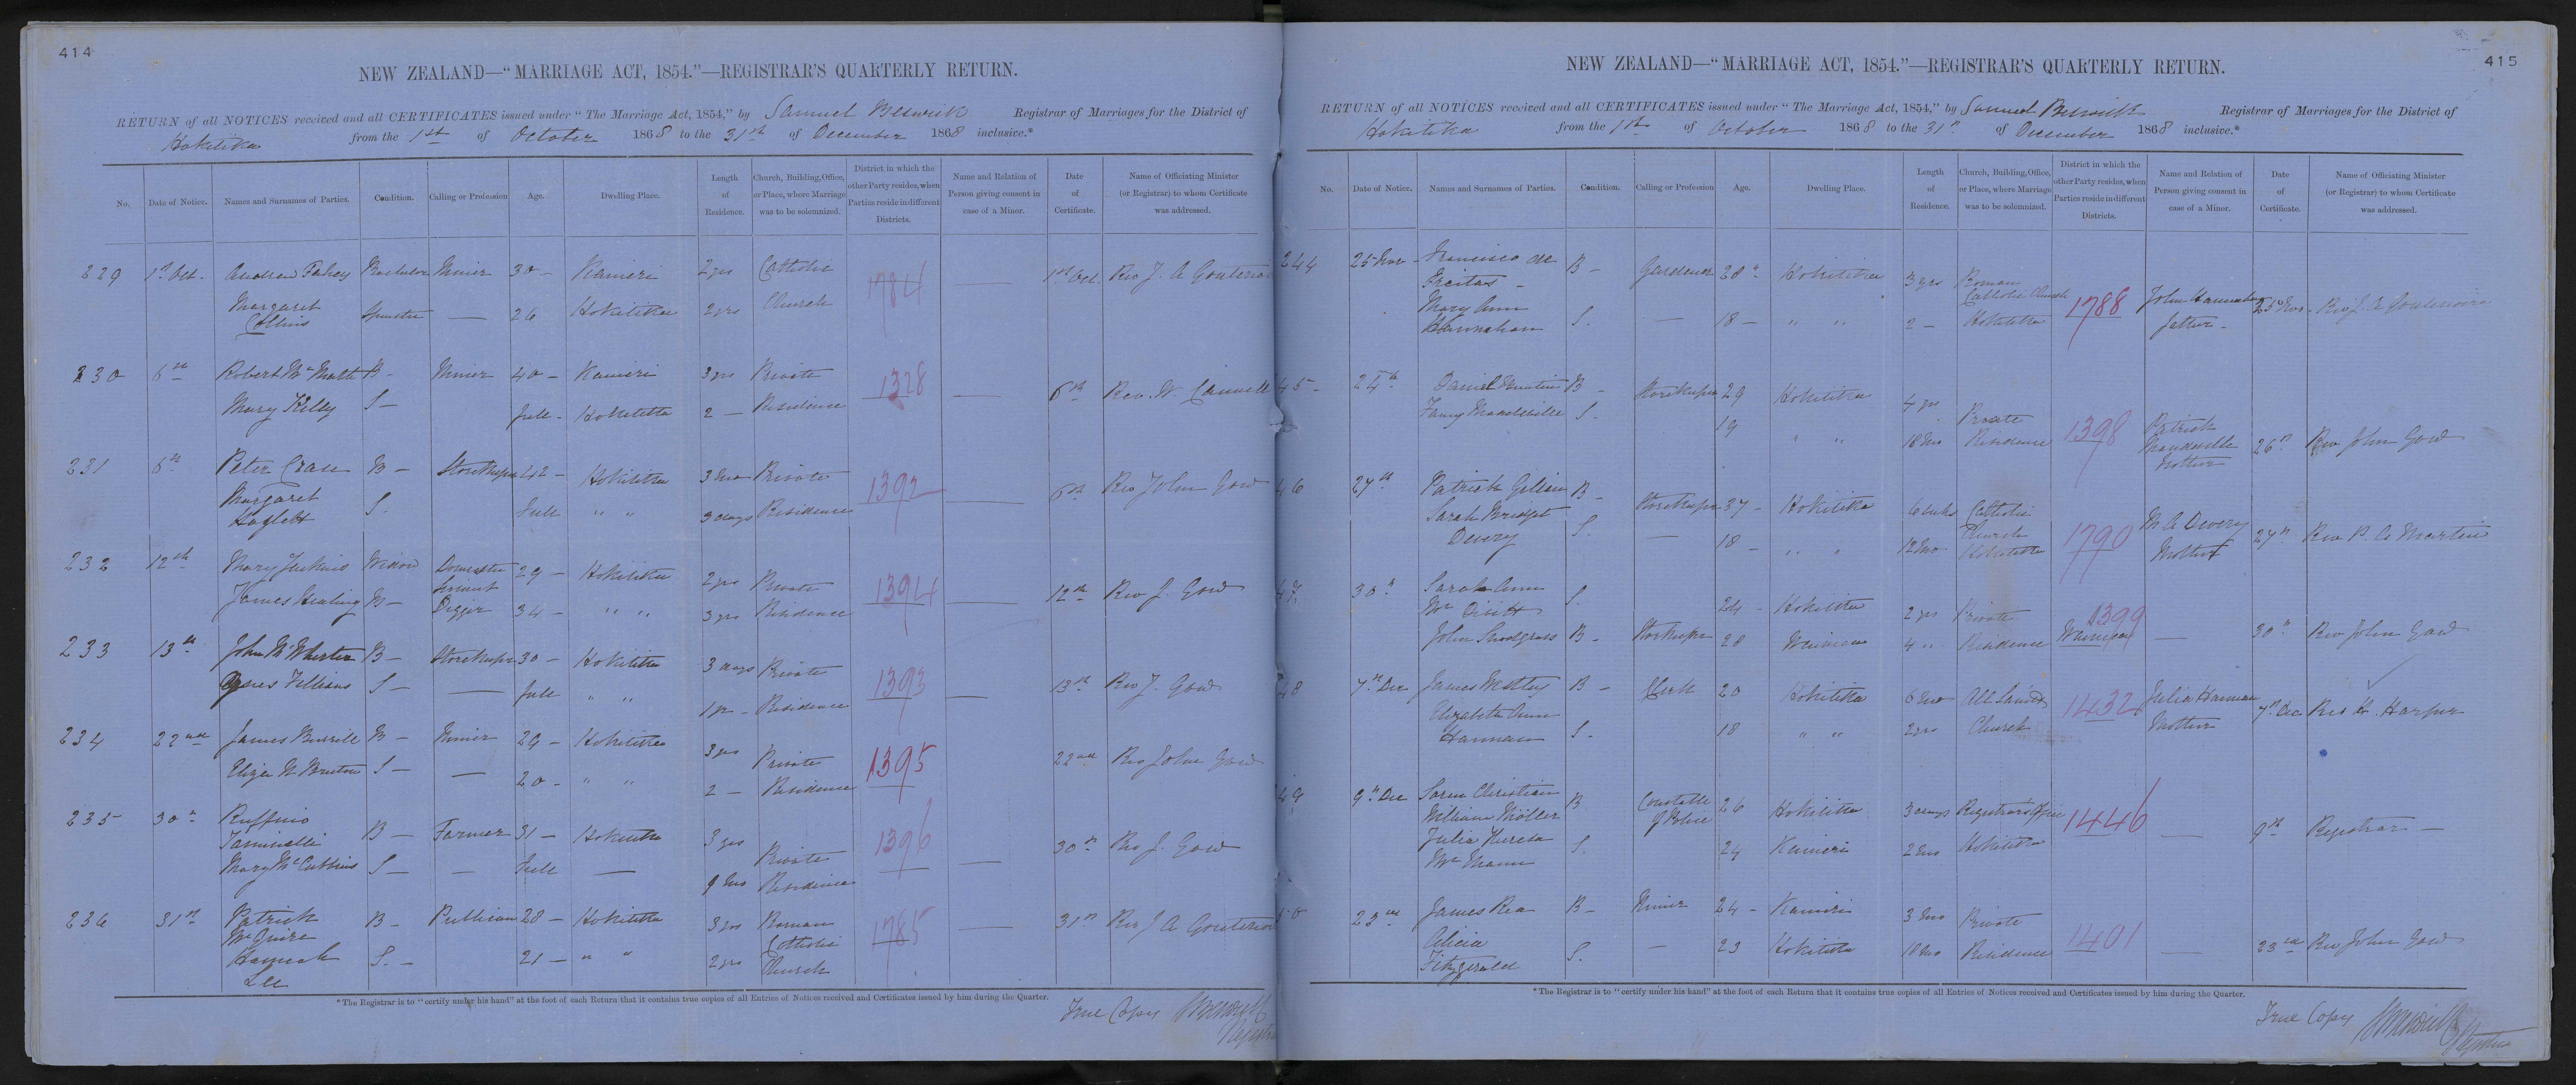 414
NEW ZEALAND—"MARRIAGE ACT, 1854."—REGISTRAR'S QUARTERLY RETURN.
RETURN of all NOTICES received and all CERTIFICATES issued under "The Marriage Act, 1854," by Samuel Beswick Registrar of Marriages for the District of
Hokitika from the 1st of October 1868 to the 31st of December 1868 inclusive.*
No. Date of Notice. Names and Surnames of Parties. Condition. Calling or Profession Age. Dwelling Place. Length of Residence. Church, Building, Office, or Place, where Marriage was to be solemnized. District in which the other Party resides, when Parties reside in different Districts. Name and Relation of Person giving consent in case of a Minor. Date of Certificate. Name of Officiating Minister (or Registrar) to whom Certificate was addressed.
229 1st Oct. Andrew Fahey Bachelor Miner 30 — Kanieri 2 yrs Catholic 1784 — 1st Oct. Rev J. A
Margaret Collins Spinster — 26 Hokitika 2 yrs Church
230 6th Robert B — Miner 40 — Kanieri 3 yrs Private 1328 — 6th Rev. W.
Mary Kelly S — Full — Hokitika 2 — Residence
231 6th Peter Cran B — Storekeeper 42 — Hokitika 3 Mos Private 1392 — 6th Rev John Gow
Margaret S. Full " " 3 days Residence
232 12th Mary Jenkins Widow Domestic Servant 29 — Hokitika 2 yrs Private 1394 — 12th Rev J. Gow
James B — Digger 34 — " " 3 yrs Residence
233 13th John McWhirter B — Storekeeper 30 — Hokitika 3 days Private 1393 — 13th Rev J. Gow
Agnes S — — Full " " Residence
234 22nd James Burrell B — Miner 29 — Hokitika 3 yrs Private 1395 22nd Rev John Gow
Eliza S — — 20 — " " 2 — Residence
235 30th Ruffino B — Farmer 31 — Hokitika 3 yrs Private 1396 — 30th Rev J. Gow
Mary McCubbins S — — Full — 9 Mos Residence
236 31st Patrick McGuire B — Publican 28 — Hokitika 3 yrs Roman Catholic 1785 — 31st Rev J A
Hannah Lee S. — 21 — " " 2 yrs Church
*The Registrar is to "certify under his hand" at the foot of each Return that it contains true copies of all Entries of Notices received and Certificates issued by him during the Quarter.
True Copy SBeswick
Registrar
415
NEW ZEALAND—"MARRIAGE ACT, 1854."—REGISTRAR'S QUARTERLY RETURN.
RETURN of all NOTICES received and all CERTIFICATES issued under "The Marriage Act, 1854," by Samuel Beswick Registrar of Marriages for the District of
Hokitika from the 1st of October 1868 to the 31st of December 1868 inclusive.*
No. Date of Notice. Names and Surnames of Parties. Condition. Calling or Profession Age. Dwelling Place. Length of Residence. Church, Building, Office, or Place, where Marriage was to be solemnized. District in which the other Party resides, when Parties reside in different Districts. Name and Relation of Person giving consent in case of a Minor. Date of Certificate. Name of Officiating Minister (or Registrar) to whom Certificate was addressed.
244 25 Nov — Francisco de Freitas — B — Gardener 28 Hokitika 3 yrs Roman Catholic Church 1788 John Hannahan 25 Nov — Rev J. A
Mary Ann Hannahan S. — 18 — " " 2 — Hokitika father —
45 — Daniel B — Storekeeper 29 Hokitika 4 yrs Private 1398 Patrick 26th Rev John Gow
Fanny Mandeville S — 19 " " 18 Mos Residence Mandeville
46 27th Patrick B — Storekeeper 37 — Hokitika 6 weeks Catholic 1790 M A Devery 27th Rev P. A Martin
Sarah Bridget Devery S. — 18 — " " 12 Mos Church Hokitika Mother
47 30th Sarah Ann S. 24 — Hokitika 2 yrs Private 1399 — 30th Rev John Gow
John Snodgrass B — Storekeeper 28 4 " Residence
48 7th Dec James B — Clerk 20 Hokitika 6 Mos All Saints 1432 Julia Hannam 7th Dec Rev H. Harper
Elizabeth Ann Hannam S — 18 " " 2 yrs Church Mother
49 9th Dec Soren Christian William Möller B Constable of Police 26 Hokitika 3 days Registrar's Office 1446 — 9th Registrar —
Julia S. 24 Kanieri 2 Mos Hokitika
50 23rd James Rea B — Miner 24 — Kanieri 3 Mos Private 1401 — 23rd Rev John Gow
Alicia Fitzgerald S. — 23 Hokitika 18 Mos Residence
*The Registrar is to "certify under his hand" at the foot of each Return that it contains true copies of all Entries of Notices received and Certificates issued by him during the Quarter.
True Copy SBeswick
Registrar